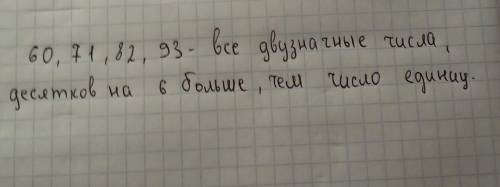 60, 71, 82, 93 - все двузначные числа,
десятков на 6 больше, чем число единиц.